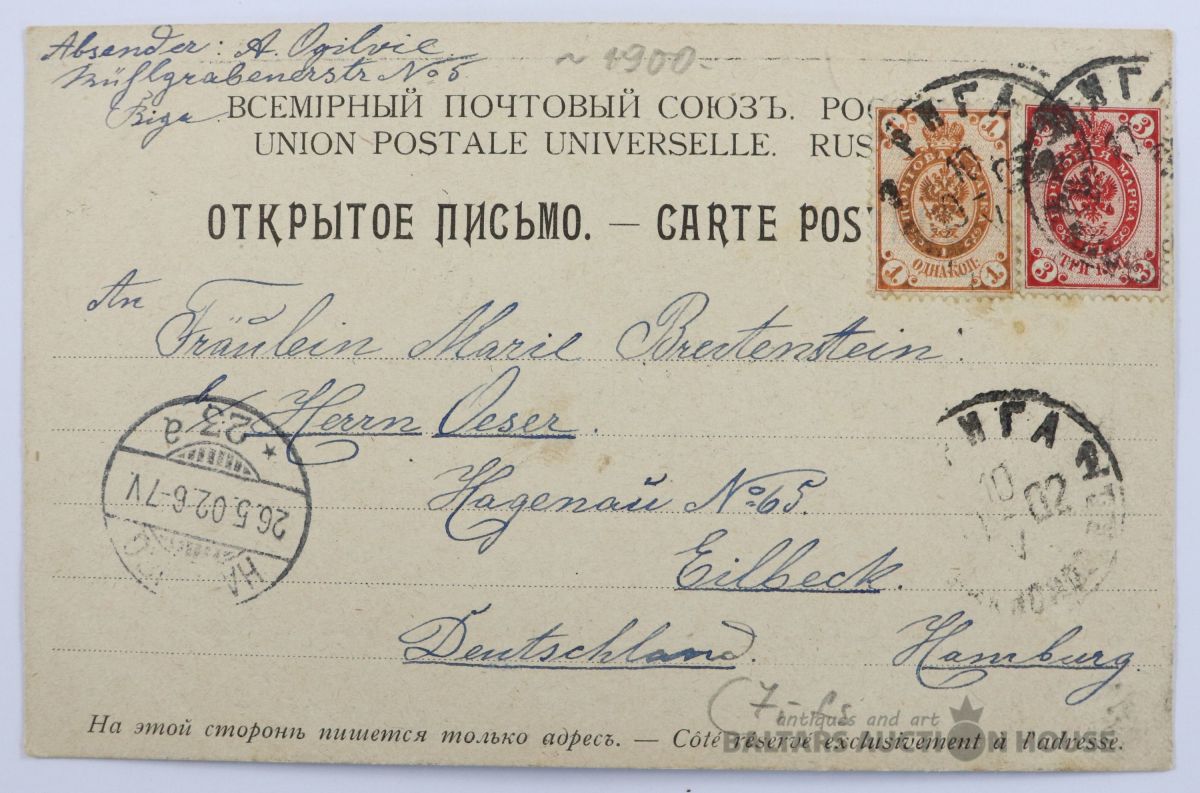 Absender: A. Ogilvie
Mühlgrabenerstr No 5
Riga
~ 1900-
ВСЕМІРНЫЙ ПОЧТОВЫЙ СОЮЗЪ. РОС
UNION POSTALE UNIVERSELLE. RUS
ОТКРЫТОЕ ПИСЬМО. — CARTE POS
РИГА
10
1 1
ПОЧТОВАЯ МАРКА
ОДНА КОП.
1 1
ИГА
3 3
МАРКА
ТРИ КОП.
3 3
An
Fräulein Marie Breitenstein.
b/ Herrn Oeser.
Hagenau No 65.
Eilbeck.
Deutschland. Hamburg.
* 23 a
26.5.02.6-7V.
HA
ИГА 2.
10
V
02
На этой сторонѣ пишется только адресъ. — Côté réservé exclusivement à l'adresse.
antiques and art
BALTARS AUCTION HOUSE